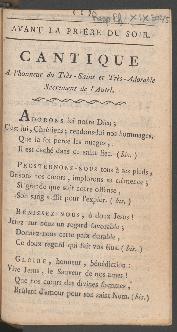 AVANT LA PRIÈRE DU SOIR.
CANTIQUE
A l'honneur du Très-Saint et Très-Adorable
Sacrement de l'Autel.
ADORONS ici notre Dieu ;
C'est lui, Chrétiens ; rendons-lui nos hommages,
Que la foi perce les nuages,
Il est caché dans ce saint lieu. (bis.)
PROSTERNONS-NOUS tous à ses pieds,
Brisons nos cœurs, implorons sa clémence ;
Si grande que soit notre offense,
Son sang suffit pour l'expier. (bis.)
BÉNISSEZ-NOUS, ô doux Jesus !
Jetez sur nous un regard favorable ;
Donnez-nous cette paix durable,
Ce doux regard qui fait vos élus. (bis.)
GLOIRE, honneur, bénédiction :
Vive Jesus, le Sauveur de nos ames !
Que nos cœurs des divines flammes,
Brûlent d'amour pour son saint Nom. (bis.)